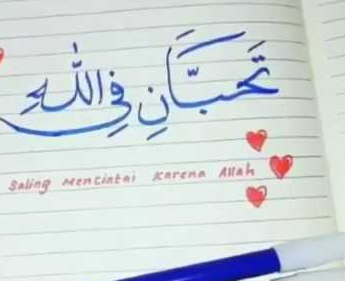 تَحَبَّانِ فِي اللّٰهِ
Saling Mencintai Karena Allah